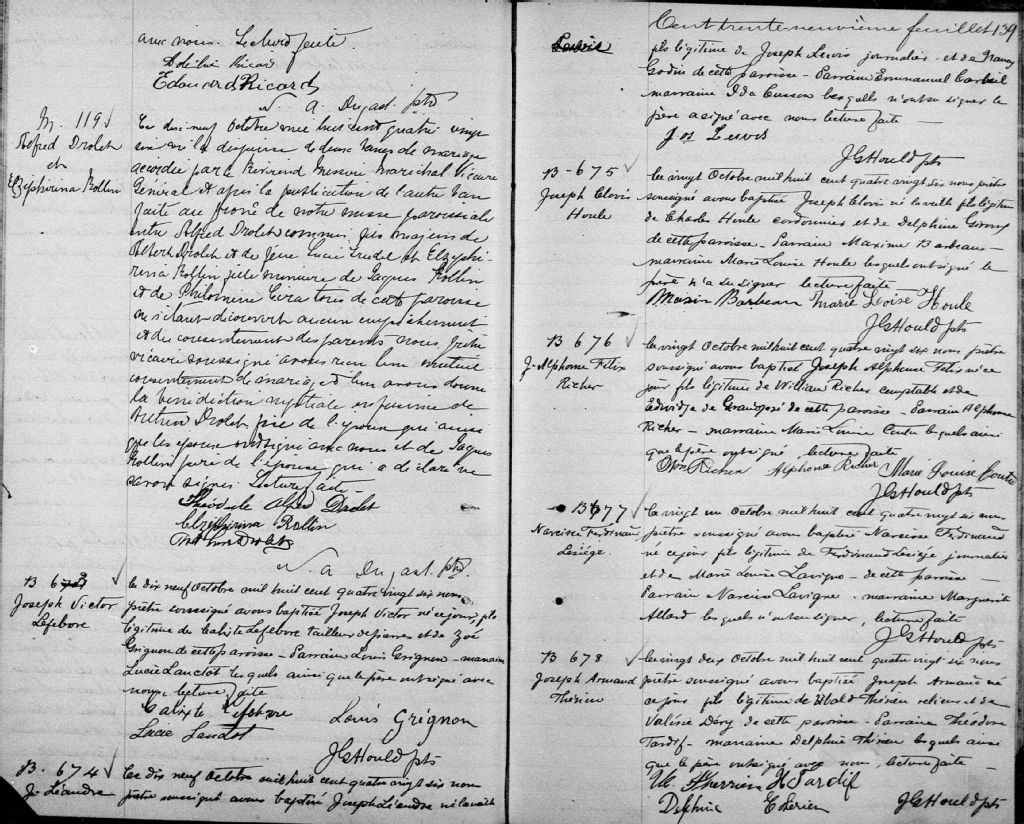 avec nous. Lecture faite.
Adelin Ricard
Edouard Ricard
N. A. Dugast ptre
M. 119
Alfred Drolet
et
Elzéphirina Rollin
Le dix neuf Octobre mil huit cent quatre vingt
six vu la dispense de deux bans de mariage
accordée par le Révérend Messire Maréchal Vicaire
Général et après la publication de l'autre ban
faite au prône de notre messe paroissiale
entre Alfred Drolet commis fils majeur de
Albert Drolet et de Lucie Trudel et Elzéphi-
rina Rollin fille mineure de Jaques Rollin
et de Philomène tous de cette paroisse
ne s'étant découvert aucun empêchement
et du consentement des parents nous prêtre
vicaire soussigné avons reçu leur mutuel
consentement de mariage et leur avons donné
la bénédiction nuptiale en présence de
Arthur Drolet frère de l'époux qui ainsi
que les époux ont signé avec nous et de Jaques
Rollin père de l'épouse qui a déclaré ne
savoir signer. Lecture faite
Théodule Alfred Drolet
Elzephirina Rollin
Arthur Drolet
N. A. Dugast. ptre
B 673
Joseph Victor
Lefebvre
Le dix neuf Octobre mil huit cent quatre vingt six nous
prêtre soussigné avons baptisé Joseph Victor né ce jour, fils
légitime de Calixte Lefebvre tailleur de pierres et de Zoé
Grignon de cette paroisse - Parrain Louis Grignon - marraine
Lucie Lanctot lesquels ainsi que le père ont signé avec
nous lecture faite
Calixte Lefebvre Louis Grignon
Lucie Lanctot
JGHould pts
B. 674
J. Léandre
Le dix neuf Octobre mil huit cent quatre vingt six nous
prêtre soussigné avons baptisé Joseph Léandre né la veille
Cent trente neuvième feuillet 139
Lewis
fils légitime de Joseph Lewis journalier et de Nancy
Godin de cette paroisse - Parrain Emmanuel Corbeil
marraine Ida Cusson lesquels n'ont su signer le
père a signé avec nous lecture faite
Jos Lewis
JGHould pts
B - 675
Joseph Clovis
Houle
Le vingt Octobre mil huit cent quatre vingt six nous prêtre
soussigné avons baptisé Joseph Clovis né la veille fils légitime
de Charles Houle cordonnier et de Delphine Giroux
de cette paroisse - Parrain Maxime Barbeau -
marraine Marie Louise Houle lesquels ont signé le
père n'a su signer lecture faite
Maxim Barbeau Marie Loise Houle
JGHould pts
B 676
J. Alphonse Félix
Richer
Le vingt Octobre mil huit cent quatre vingt six nous prêtre
soussigné avons baptisé Joseph Alphonse Félix né ce
jour fils légitime de William Richer comptable et de
Edwidge de Grandpré de cette paroisse - Parrain Alphonse
Richer - marraine Marie Louise Coutu lesquels ainsi
que le père ont signé lecture faite
Wm Richer Alphonse Richer Marie Louise Coutu
JGHould pts
B 677
Narcisse Ferdinand
Lesiège.
Le vingt un Octobre mil huit cent quatre vingt six nous
prêtre soussigné avons baptisé Narcisse Ferdinand
né ce jour fils légitime de Ferdinand Lesiège journalier
et de Marie Louise Lavigne - de cette paroisse -
Parrain Narcisse Lavigne - marraine Marguerite
Allard lesquels n'ont su signer, lecture faite
JGHould pts
B 678
Joseph Armand
Thérien
Le vingt deux Octobre mil huit cent quatre vingt six nous
prêtre soussigné avons baptisé Joseph Armand né
ce jour fils légitime de Ubald Thérien relieur et de
Valérie Déry de cette paroisse - Parrain Théodore
Tardif - marraine Delphine Thérien lesquels ainsi
que le père ont signé avec nous, lecture faite -
Ub. Therrien H Tardif
Delphine Therien JGHould pts